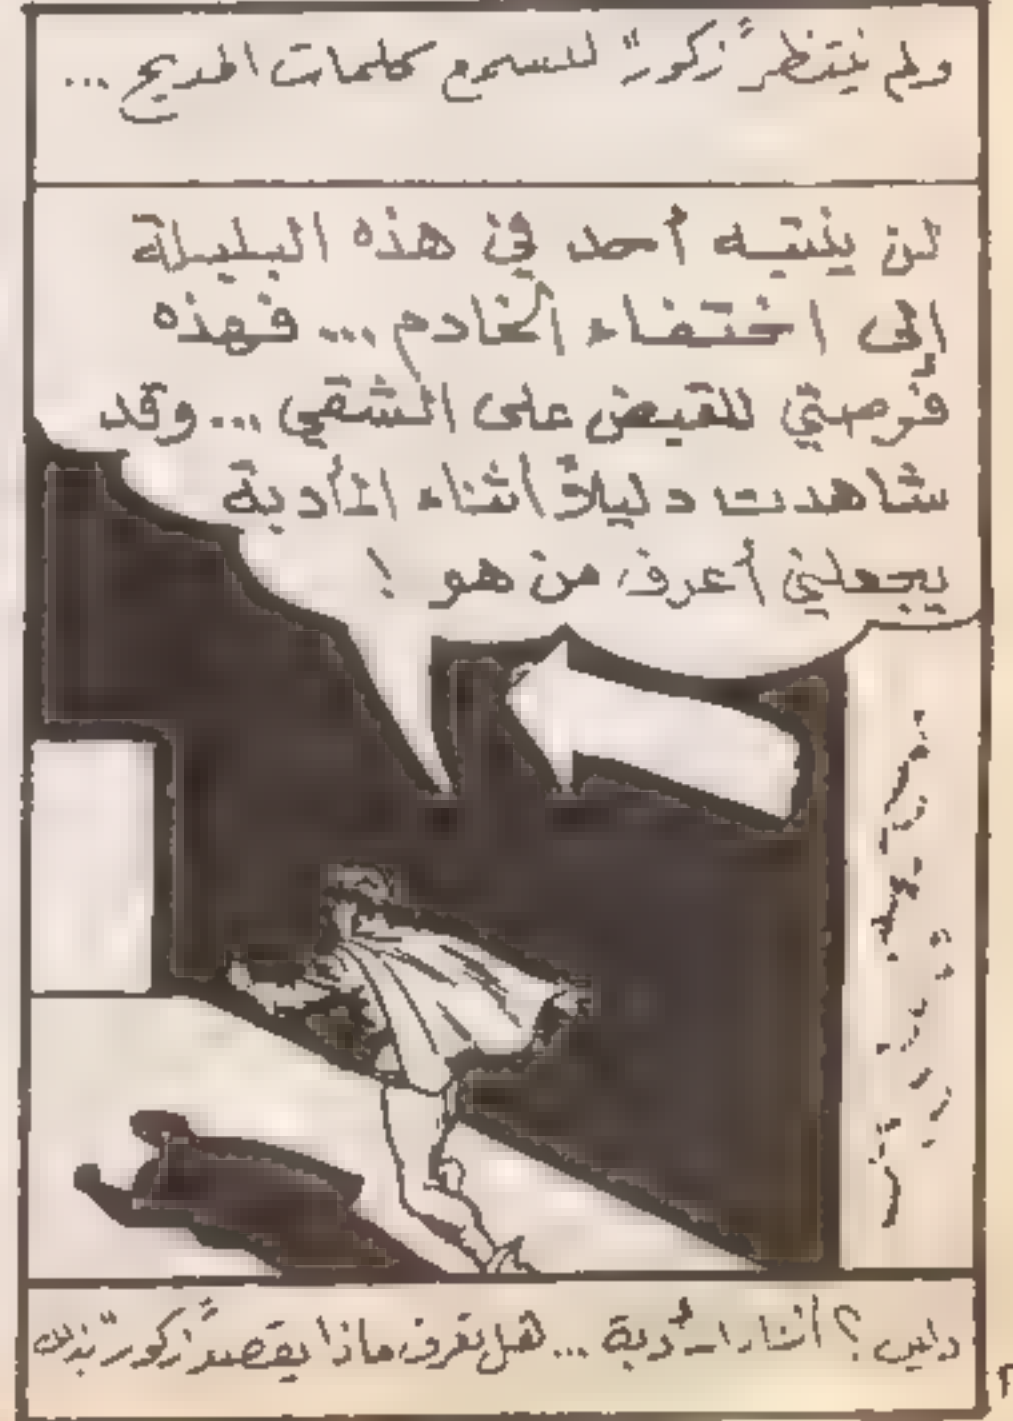 ولم ينتظر "زكور" لسمع كلمات المديح ...
لن ينتبه أحد في هذه البليلة
إلى اختفاء الخادم ... فهذه
فرصتي للقبض على الشقي ... وقد
شاهدت دليلاً أثناء المأدبة
يجعلني أعرف من هو !
دليل ؟ أثناء المأدبة ... هل تعرف ماذا يقصد "زكور" بذلك